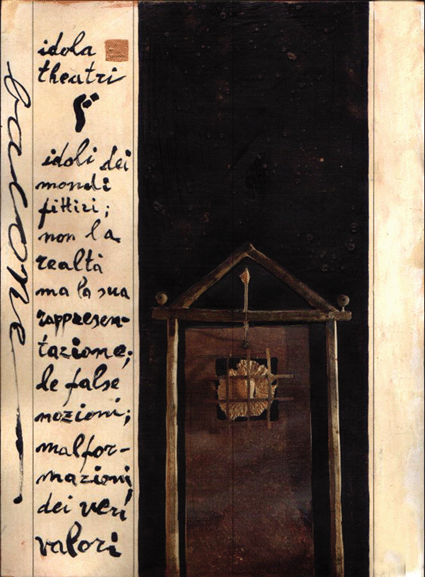 bacone
idola
theatri
idoli dei
mondi
fittizi;
non la
realtà
ma la sua
rappresen-
tazione;
le false
nozioni;
malfor-
mazioni
dei veri
valori